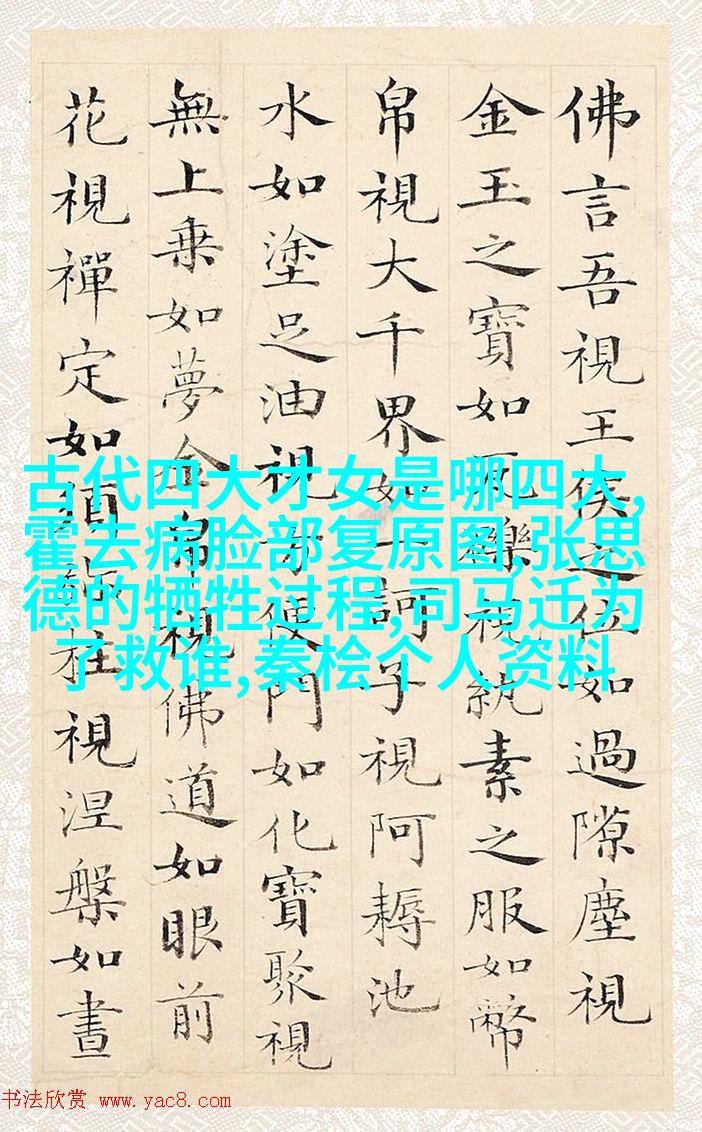 佛言吾視王侯之位如過隙塵視
金玉之寶如瓦礫視紈素之服如幣
帛視大千界如一訶子視阿耨池
水如塗足油視方便門如化寶聚視
無上乗如夢金帛視佛道如眼前
花視禪定如須彌柱視涅槃如晝
古代四大才女是哪四大,
霍去病脸部复原图,张思
德的牺牲过程,司马迁为
了救谁,秦桧个人资料
书法欣赏 www.yac8.com